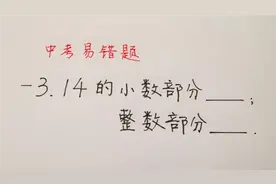 中考易错题
-3.14的小数部分___;
整数部分___.